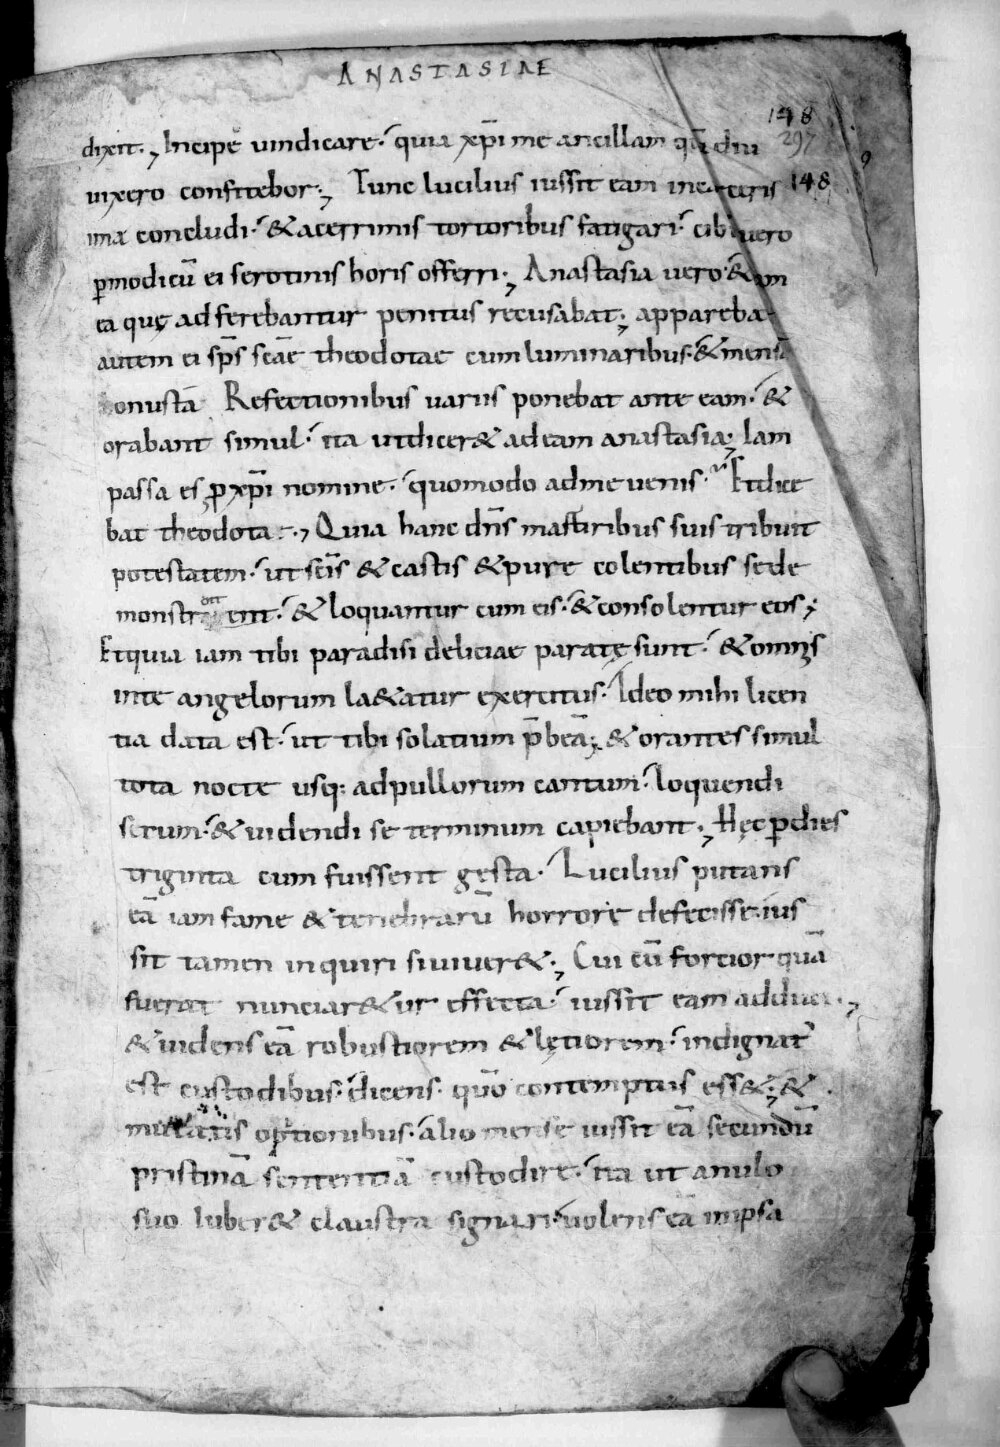 ANASTASIAE
148
297
9
148
dixit., Incipe uindicare. quia xp̄i me ancillam qd̄ diu
uixero confitebor:, Tunc lucilius iussit eam in carceris
ima concludi. & acerrimis tortoribus fatigari. cibū uero
p̱modicū ei serotinis horis offerri:, Anastasia uero & im
ea quę adferebantur penitus recusabat:, apparebat
autem ei sp̄s sc̄ae theodotae cum luminaribus. & mensā
onustā Refectionibus uariis ponebat ante eam. &
orabant simul. ita ut dicer& ad eam anastasia:, Iam
passa es ꝓ xp̄i nomine. quomodo ad me uenis. Et dice
bat theodota:, Quia hanc dn̄s martiribus suis tribuit
potestatem. ut sc̄is & castis & pure colentibus se de
monstrent. & loquantur cum eis. & consolentur eos;
Et quia iam tibi paradisi deliciae paratę sunt. & omnis
in te angelorum la&atur exercitus. Ideo mihi licen
tia data est. ut tibi solatium p̄beā:, & orantes simul
tota nocte usq: ad pullorum cantum. loquendi
serum. & uidendi se terminum capiebant:, Hęc p̱ dies
triginta cum fuissent gęsta. Lucilius putans
eā iam fame & tenebrarū horrore defecisse. ius
sit tamen inquiri si uiuer&:, Cui cū fortior quā
fuerat nunciar&ur effecta. iussit eam adduci:,
& uidens eā robustiorem & lętiorem. indignat᾽
est custodibus. dicens. quō contemptus ess&:, &
mutatis optionibus. alio mense iussit eā secundū
pristinā sententiā custodire. ita ut anulo
suo iuber& claustra signari. uolens eā in ipsa